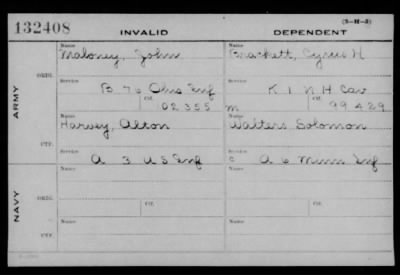 132408 INVALID DEPENDENT (3-H-3)
Name Name
Maloney, John Brackett, Cyrus H
ARMY
ORIG.
Service Service
B 76 Ohio Inf K 1 N H Cav
Ctf. Ctf.
02355 m 99429
Name Name
Harvey, Alton Walters Solomon
CTF.
Service Service
A 3 U S Inf c A 6 Minn Inf
NAVY
Name Name
ORIG.
Service Ctf. Service Ctf.
Name Name
CTF.
Service Service